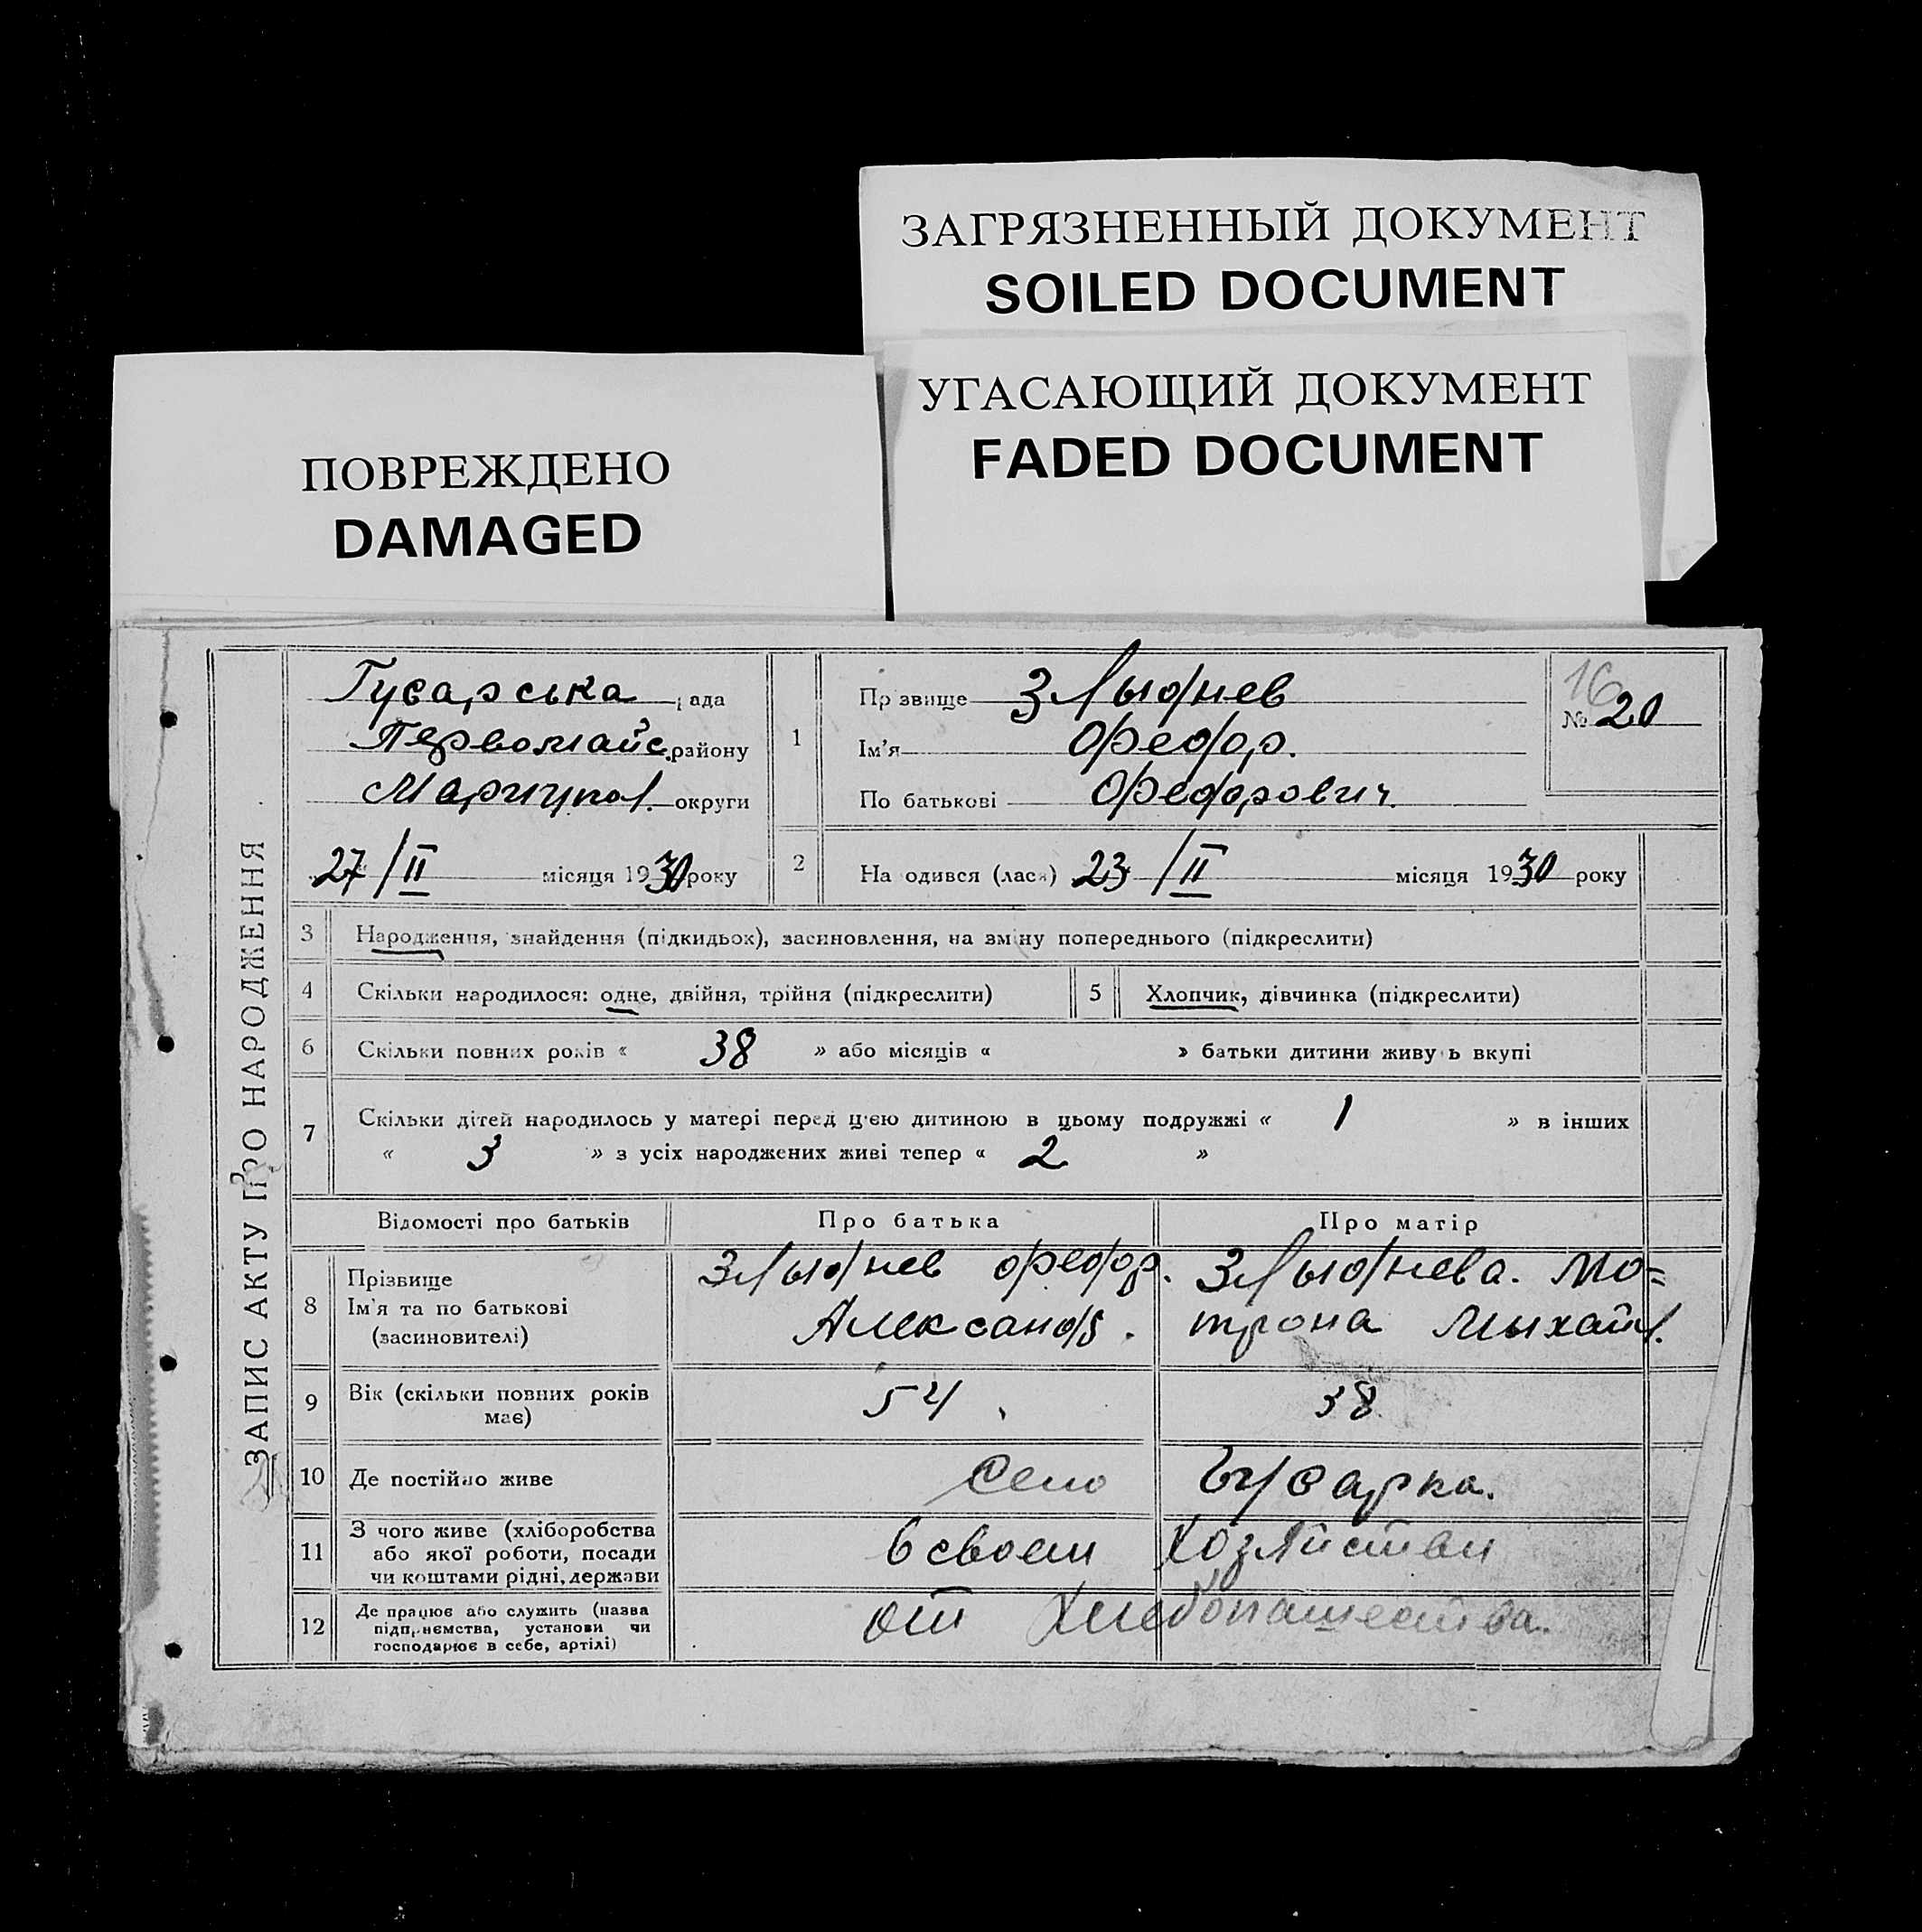 ЗАГРЯЗНЕННЫЙ ДОКУМЕНТ
SOILED DOCUMENT
УГАСАЮЩИЙ ДОКУМЕНТ
FADED DOCUMENT
ПОВРЕЖДЕНО
DAMAGED
ЗАПИС АКТУ ПРО НАРОДЖЕННЯ
Гусарська рада
Первомайс. району
Мариупол. округи
27/II місяця 1930 року
1
Прізвище Злыднев
Ім'я Федор.
По батькові Федорович.
16
№ 20
2 Народився (лася) 23/II місяця 1930 року
3 Народження, знайдення (підкидьок), засиновлення, на зміну попереднього (підкреслити)
4 Скільки народилося: одне, двійня, трійня (підкреслити)
5 Хлопчик, дівчинка (підкреслити)
6 Скільки повних років « 38 » або місяців « » батьки дитини живуть вкупі
7 Скільки дітей народилось у матері перед цією дитиною в цьому подружжі « 1 » в інших
« 3 » з усіх народжених живі тепер « 2 »
Відомості про батьків Про батька Про матір
8 Прізвище
Ім'я та по батькові
(засиновителі)
Злыднев Федор. Злыднева. Мо=
Александ. трона Мыхайл.
9 Вік (скільки повних років
має)
54 38
10 Де постійно живе Село Гусарка.
11 З чого живе (хліборобства
або якої роботи, посади
чи коштами рідні, держави
в своем Хозяйстви
12 Де працює або служить (назва
підприємства, установи чи
господарює в себе, артілі)
от Хлебопашества.